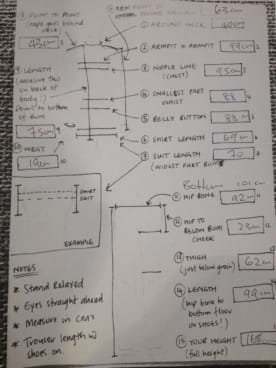 POINT TO POINT
(tape goes behind neck)
43cm
ARM POINT TO
63cm
① AROUND NECK
40cm
② ARMPIT TO ARMPIT
99cm
③ NIPPLE LINE
(CHEST)
95cm
④ SMALLEST PART
WAIST
88
⑤ BELLY BUTTON
88cm
⑥ SHIRT LENGTH
69cm
⑦ SUIT LENGTH
(WIDEST PART BUM)
70
LENGTH
(MEASURE THIS
on back of
body!)
Down to bottom
of Bum
75cm
WRIST
19cm
SHIRT
SUIT
EXAMPLE
Bottom 101cm
HIP BONE
92cm
HIP TO
BELOW BUM
CHEEK
23cm
THIGH
(just below groin)
62cm
LENGTH
(hip bone to
bottom floor
IN SHOES!)
99cm
YOUR HEIGHT
(full height)
168cm
NOTES
* Stand Relaxed
* Eyes straight ahead
* Measure in CMS
* Trouser length w
shoes on.